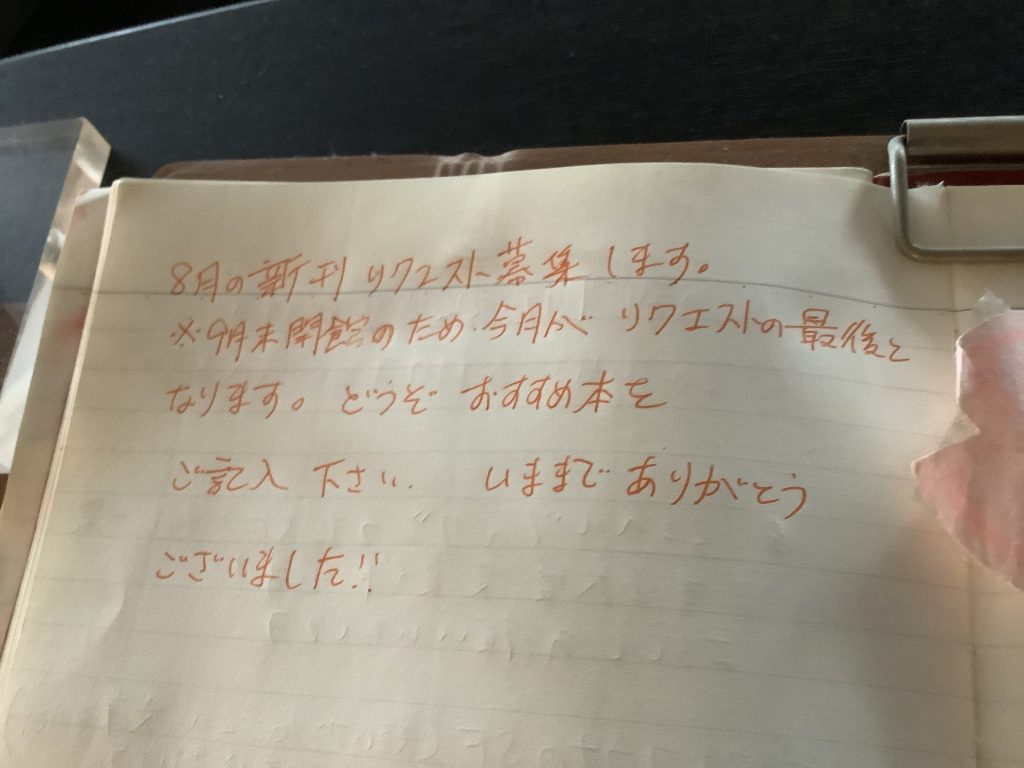 8月の新刊 リクエスト募集します。
※9月末閉館のため 今月が リクエストの最後と
なります。どうぞ おすすめ本を
ご記入 下さい. いままで ありがとう
ございました!!